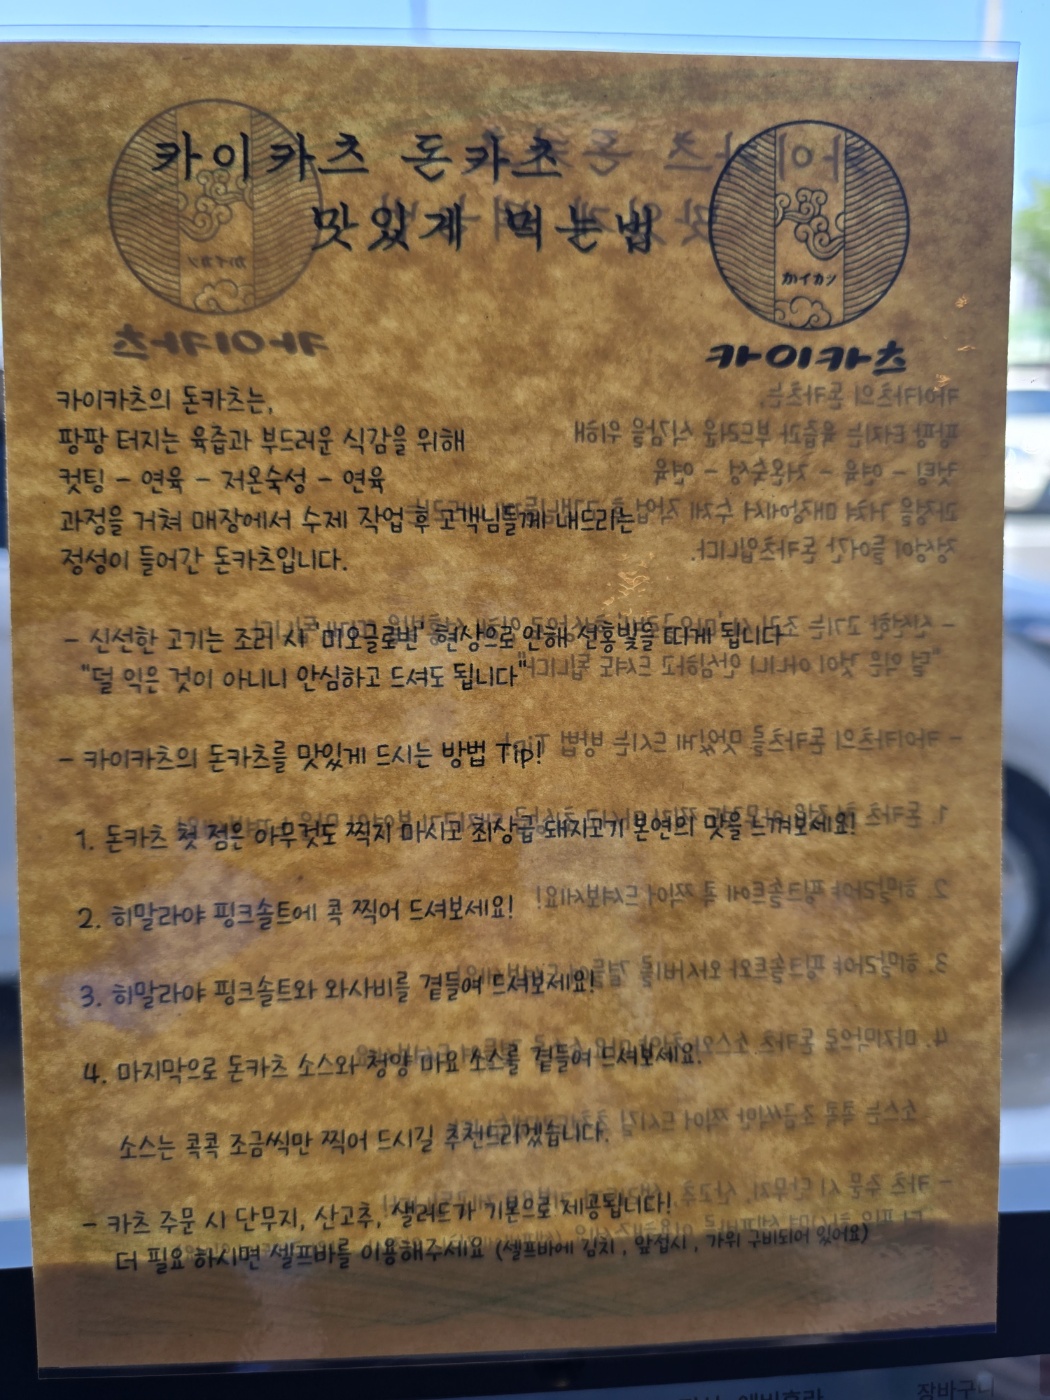 카이카츠 돈카츠
맛있게 먹는법
カイカツ
카이카츠
카이카츠의 돈카츠는,
팡팡 터지는 육즙과 부드러운 식감을 위해
컷팅 - 연육 - 저온숙성 - 연육
과정을 거쳐 매장에서 수제 작업 후 고객님들께 내드리는
정성이 들어간 돈카츠입니다.
- 신선한 고기는 조리 시 '미오글로빈' 현상으로 인해 선홍빛을 띠게 됩니다
"덜 익은 것이 아니니 안심하고 드셔도 됩니다"
- 카이카츠의 돈카츠를 맛있게 드시는 방법 Tip!
1. 돈카츠 첫 점은 아무것도 찍지 마시고 최상급 돼지고기 본연의 맛을 느껴보세요!
2. 히말라야 핑크솔트에 콕 찍어 드셔보세요!
3. 히말라야 핑크솔트와 와사비를 곁들여 드셔보세요!
4. 마지막으로 돈카츠 소스와 청양 마요 소스를 곁들여 드셔보세요.
소스는 콕콕 조금씩만 찍어 드시길 추천드리겠습니다.
- 카츠 주문 시 단무지, 산고추, 샐러드가 기본으로 제공됩니다!
더 필요하시면 셀프바를 이용해주세요 (셀프바에 김치, 앞접시, 가위 구비되어 있어요)